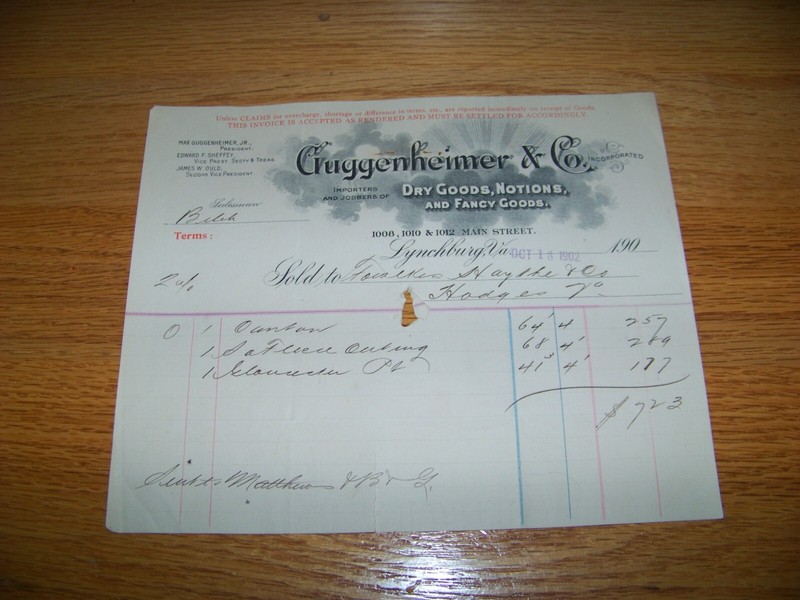 Unless CLAIMS for overcharge, shortage or difference in terms, etc., are reported immediately on receipt of Goods,
THIS INVOICE IS ACCEPTED AS RENDERED AND MUST BE SETTLED FOR ACCORDINGLY.
MAX GUGGENHEIMER, JR.,
PRESIDENT.
EDWARD F. SHEFFEY,
VICE PREST. SECTY & TREAS.
JAMES W. OULD,
SECOND VICE PRESIDENT
Guggenheimer & Co.
INCORPORATED
IMPORTERS
AND JOBBERS OF
DRY GOODS, NOTIONS,
AND FANCY GOODS.
Salesman
1008, 1010 & 1012 MAIN STREET.
Terms:
Lynchburg, Va. OCT 18 1902 190
Sold to Haythe & Co
Hodges Va
0 1 Canton 64¹ 4 257
1 Fleece Outing 68 4¹ 289
1 Gloucester 41³ 4¹ 177
$723
Matthews & B & G.